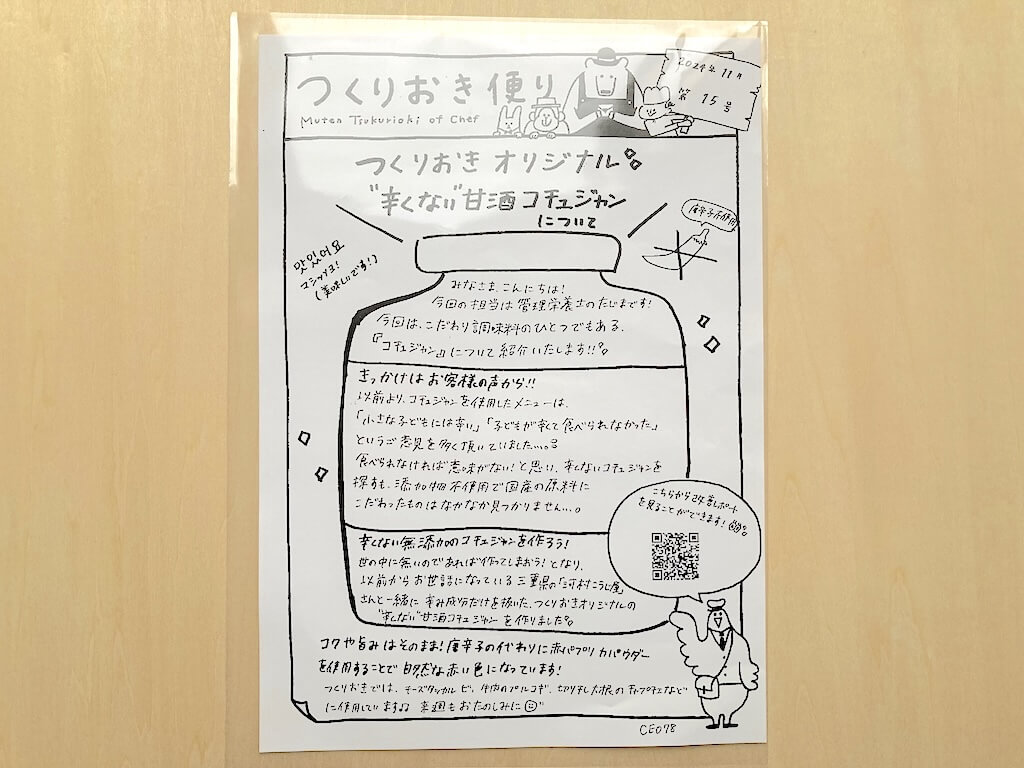 つくりおき便り
Muten Tsukurioki of Chef
2024年11月
第15号
つくりおき オリジナル
"辛くない"甘酒コチュジャン
について
맛있어요
マシッソヨ!
(美味しいです!)
唐辛子不使用
みなさま、こんにちは!
今回の担当は管理栄養士のたじまです!
今回は、こだわり調味料のひとつでもある、
『コチュジャン』について紹介いたします!!
きっかけはお客様の声から!!
以前より、コチュジャンを使用したメニューは、
「小さな子どもには辛い」「子どもが辛くて食べられなかった」
というご意見を多く頂いていました…。
食べられなければ意味がない!と思い、辛くないコチュジャンを
探すも、添加物不使用で国産の原料に
こだわったものはなかなか見つかりません…。
こちらから改善レポート
を見ることができます!
辛くない無添加のコチュジャンを作ろう!
世の中に無いのであれば作ってしまおう!となり、
以前からお世話になっている三重県の「河村こうじ屋」
さんと一緒に辛み成分だけを抜いた、つくりおきオリジナルの
"辛くない"甘酒コチュジャンを作りました。
コクや旨みはそのまま!唐辛子の代わりに赤パプリカパウダー
を使用することで自然な赤い色になっています!
つくりおきでは、チーズタッカルビ、牛肉のプルコギ、切り干し大根のチャプチェなど
に使用しています♪ 来週もおたのしみに
CE078